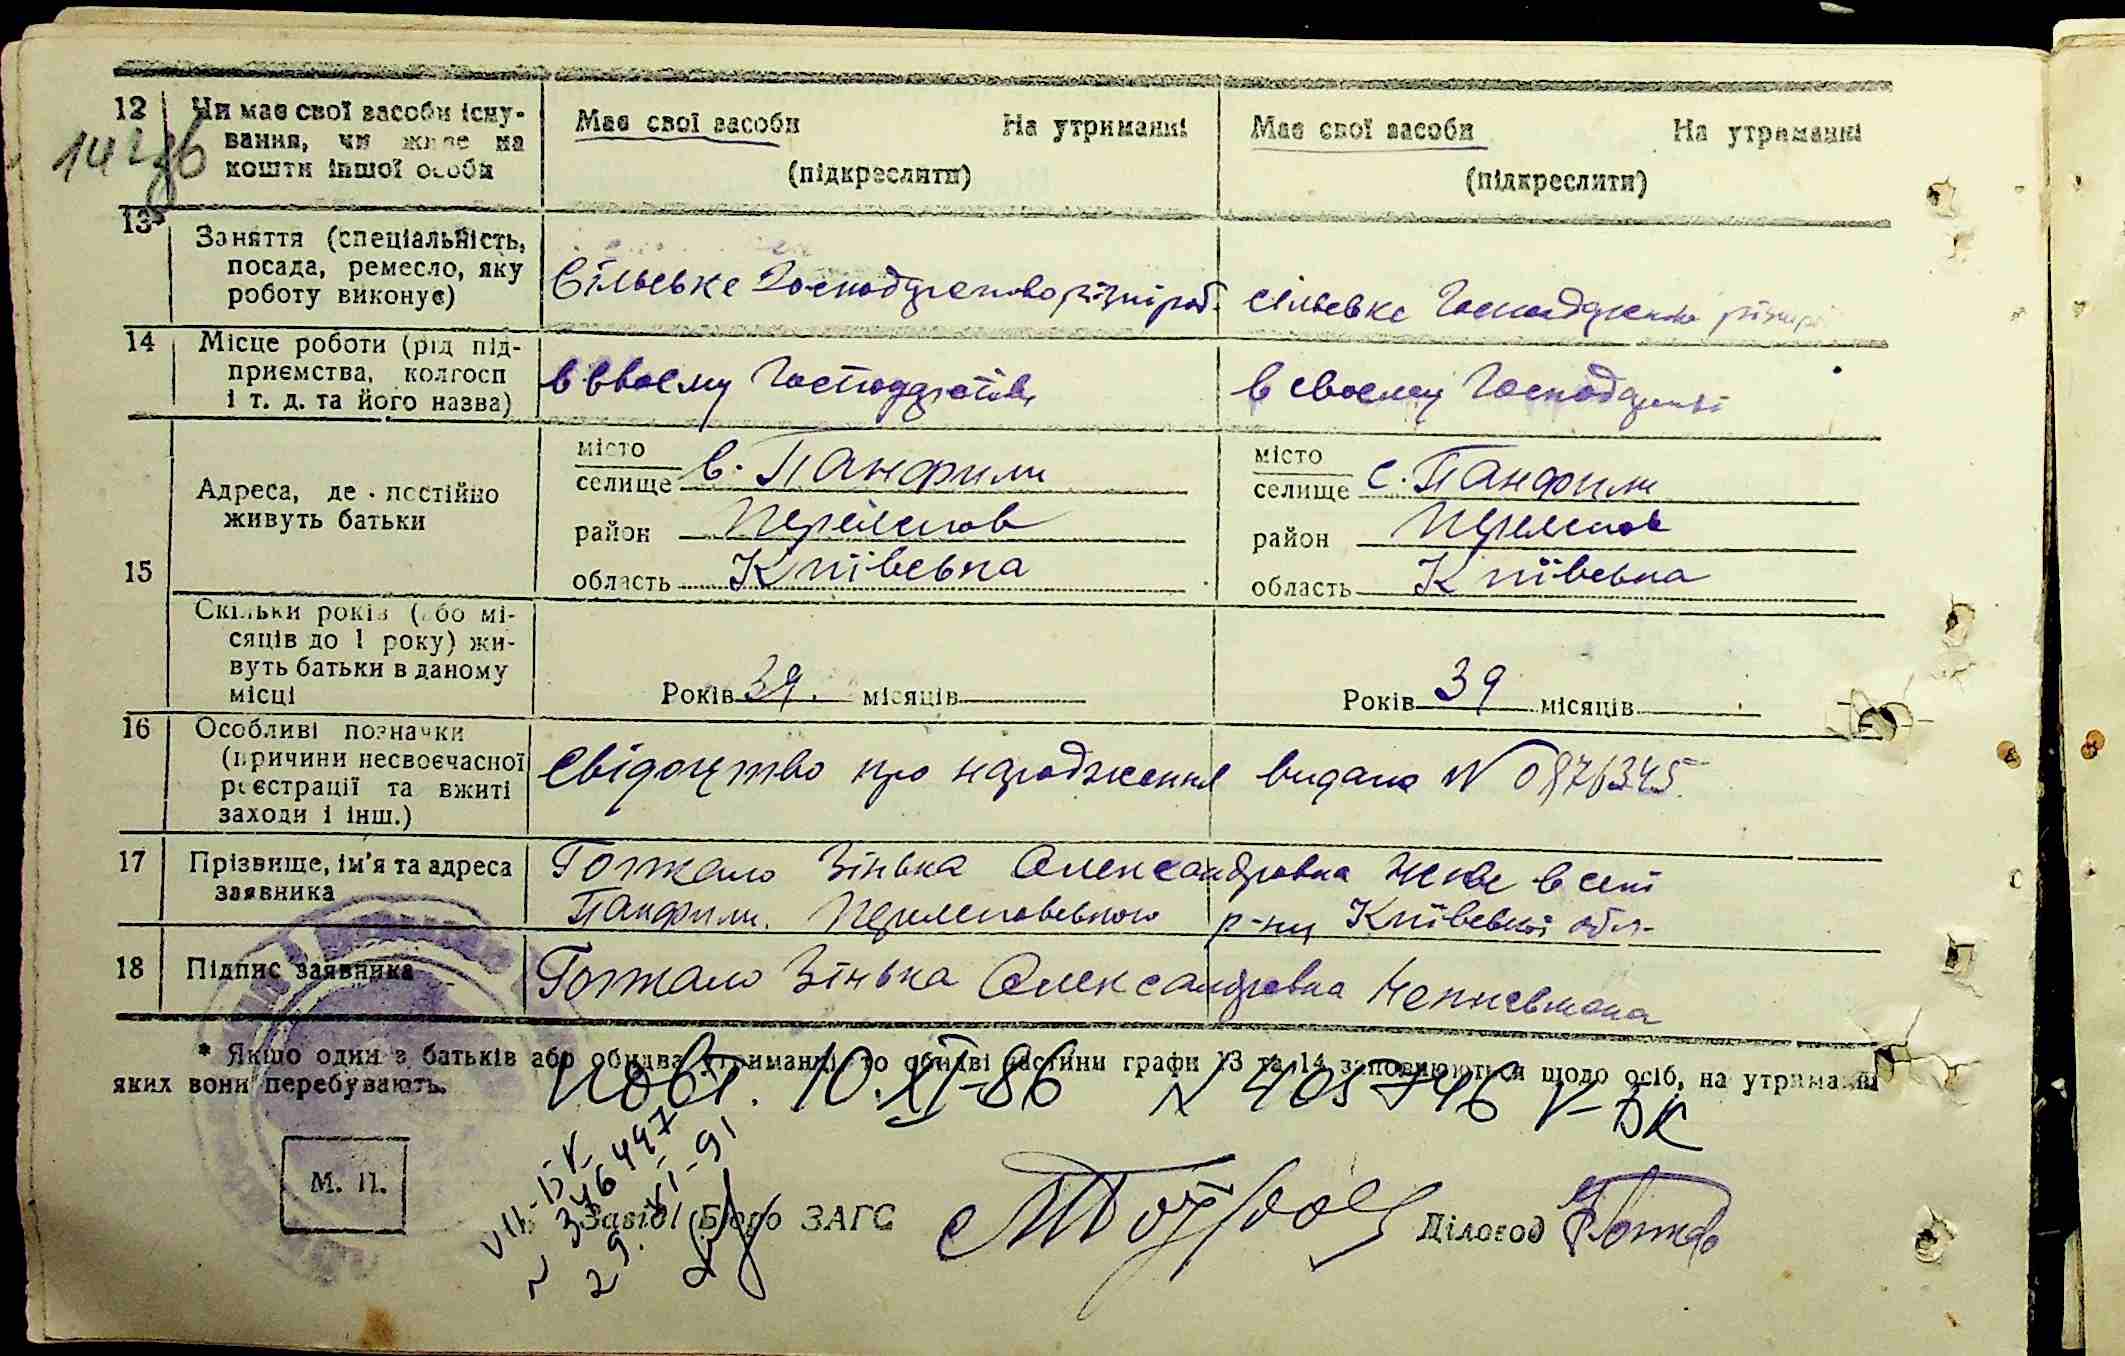 12 Чи має свої засоби існу-
вання, чи живе на
кошти іншої особи
Має свої засоби На утриманні
(підкреслити)
Має свої засоби На утриманні
(підкреслити)
13 Заняття (спеціальність,
посада, ремесло, яку
роботу виконує)
Сільське
сільське
14 Місце роботи (рід під-
приємства, колгосп
і т. д. та його назва)
в своєму Господарстві
в своєму Господарстві
15 Адреса, де постійно
живуть батьки
місто
селище с. Панфили
район Переяслов
область Київська
місто
селище с. Панфили
район Переяслов
область Київська
Скільки років (або мі-
сяців до 1 року) жи-
вуть батьки в даному
місці
Років 39. місяців
Років 39 місяців
16 Особливі позначки
(причини несвоєчасної
реєстрації та вжиті
заходи і інш.)
Свідоцтво про народження видано № 0876345
17 Прізвище, ім'я та адреса
заявника
Зінька Олександровна живе в селі
Панфили. Переясловського р-ну Київської обл.
18 Підпис заявника
Зінька Олександровна
* Якщо один з батьків або обидва утриманні, то обидві частини графи 13 та 14 заповнюються щодо осіб, на утриманні
яких вони перебувають.
Повт. 10.XI-86 V-БК
М. П.
N 346447
Завід,Бюро ЗАГС
Діловод